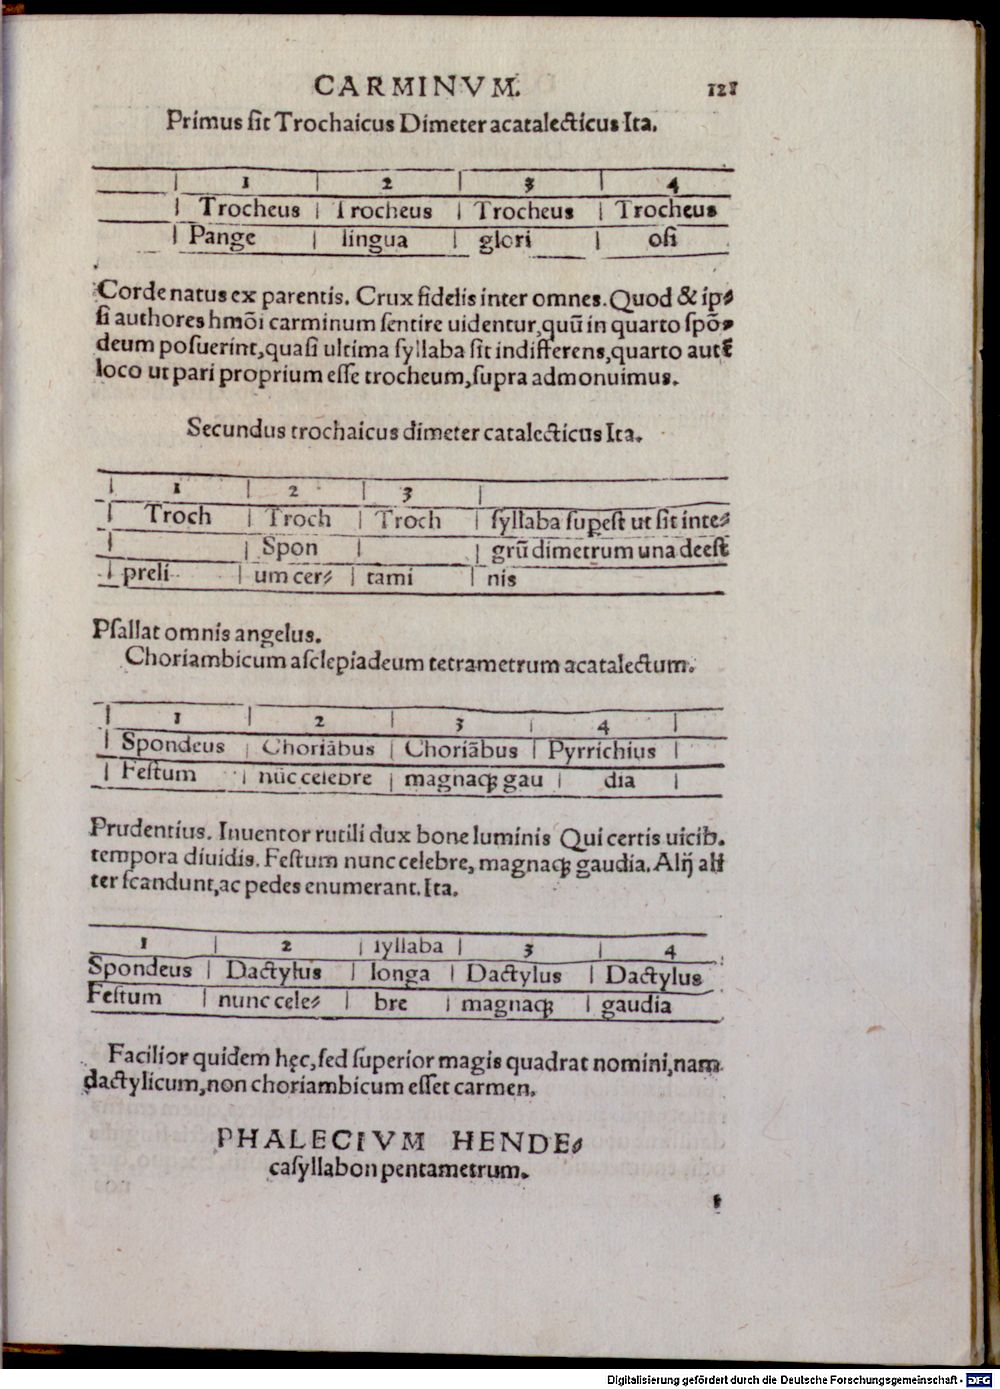 CARMINVM. 121
Primus sit Trochaicus Dimeter acatalecticus Ita.
1 2 3 4
Trocheus Trocheus Trocheus Trocheus
Pange lingua glori osi
Corde natus ex parentis. Crux fidelis inter omnes. Quod & ip⸗
si authores hmõi carminum sentire uidentur, quũ in quarto spõ⸗
deum posuerint, quasi ultima syllaba sit indifferens, quarto autẽ
loco ut pari proprium esse trocheum, supra admonuimus.
Secundus trochaicus dimeter catalecticus Ita.
1 2 3
Troch Troch Troch syllaba supest ut sit inte⸗
Spon grũ dimetrum una deest
preli um cer⸗ tami nis
Psallat omnis angelus.
Choriambicum asclepiadeum tetrametrum acatalectum.
1 2 3 4
Spondeus Choriãbus Choriãbus Pyrrichius
Festum nũc celebre magnaqȝ gau dia
Prudentius. Inuentor rutili dux bone luminis Qui certis uicib.
tempora diuidis. Festum nunc celebre, magnaqȝ gaudia. Alij ali
ter scandunt, ac pedes enumerant. Ita.
1 2 syllaba 3 4
Spondeus Dactylus longa Dactylus Dactylus
Festum nunc cele⸗ bre magnaqȝ gaudia
Facilior quidem hęc, sed superior magis quadrat nomini, nam
dactylicum, non choriambicum esset carmen.
PHALECIVM HENDE⸗
casyllabon pentametrum.
Digitalisierung gefördert durch die Deutsche Forschungsgemeinschaft - DFG